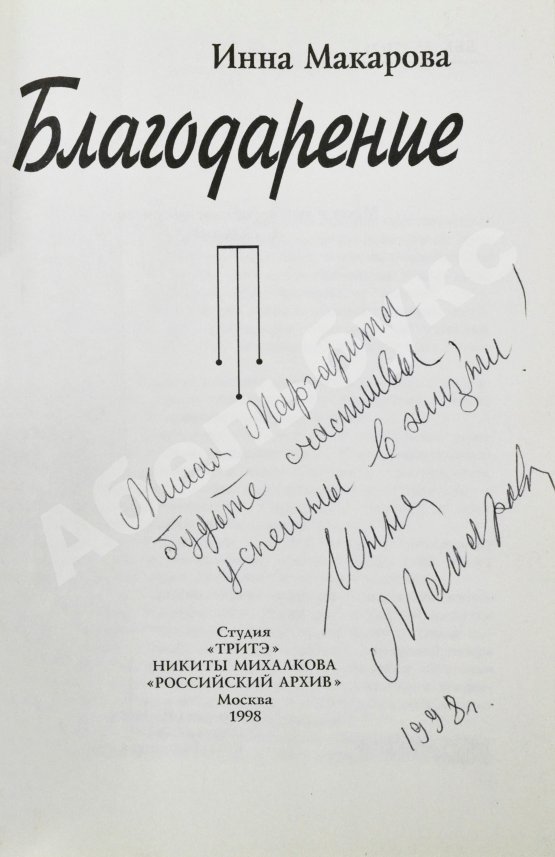 Инна Макарова
Благодарение
Милая Маргарита
будьте счастливы,
успешны в жизни!
Инна
Макарова
1998г.
Студия
«ТРИТЭ»
НИКИТЫ МИХАЛКОВА
«РОССИЙСКИЙ АРХИВ»
Москва
1998
Абельбукс